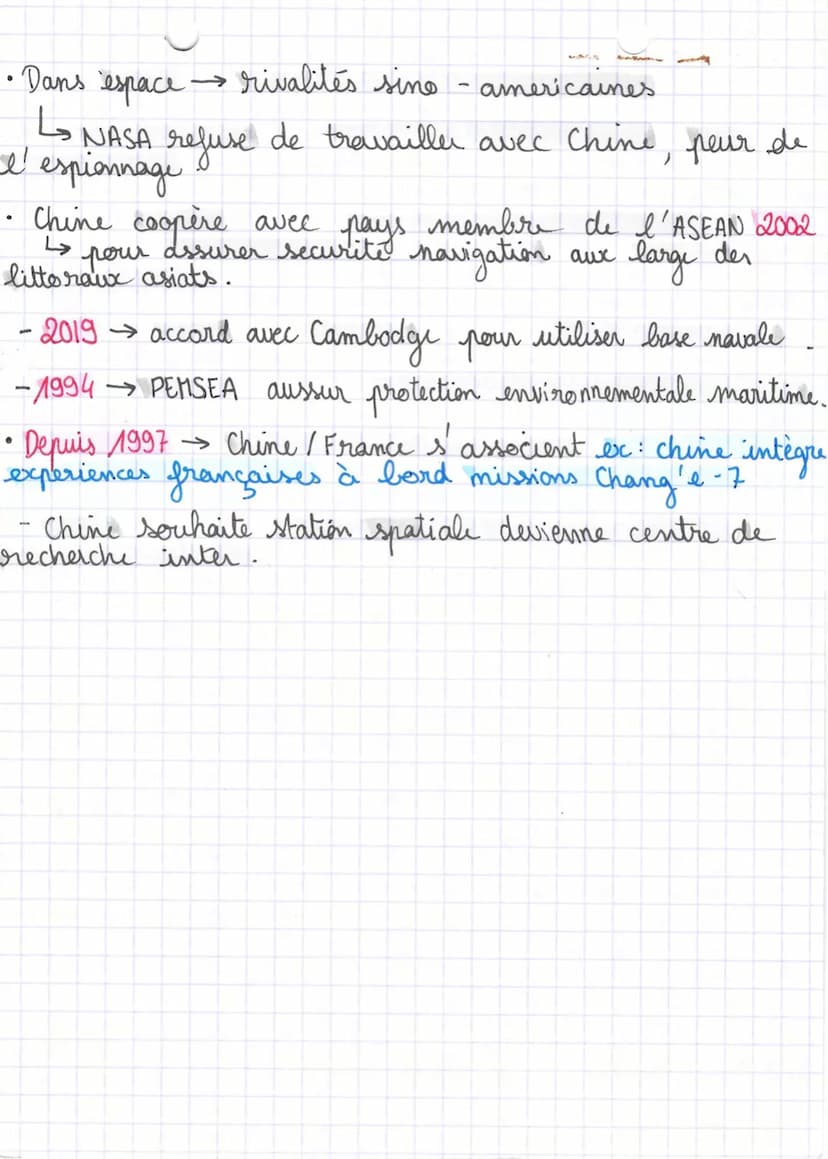 • Dans espace → rivalités sino - americaines
↳ NASA refuse de travailler avec Chine, peur de
l'espionnage.
• Chine coopère avec pays membre de l'ASEAN 2002
↳ pour assurer securité navigation aux large des
littoraux asiats.
- 2019 → accord avec Cambodge pour utiliser base navale.
- 1994 → PEMSEA aussur protection environnementale maritime.
• Depuis 1997 → Chine / France s'associent ex: chine intègre
experiences françaises à bord missions Chang'e-7
- Chine souhaite station spatiale devienne centre de
recherche inter.